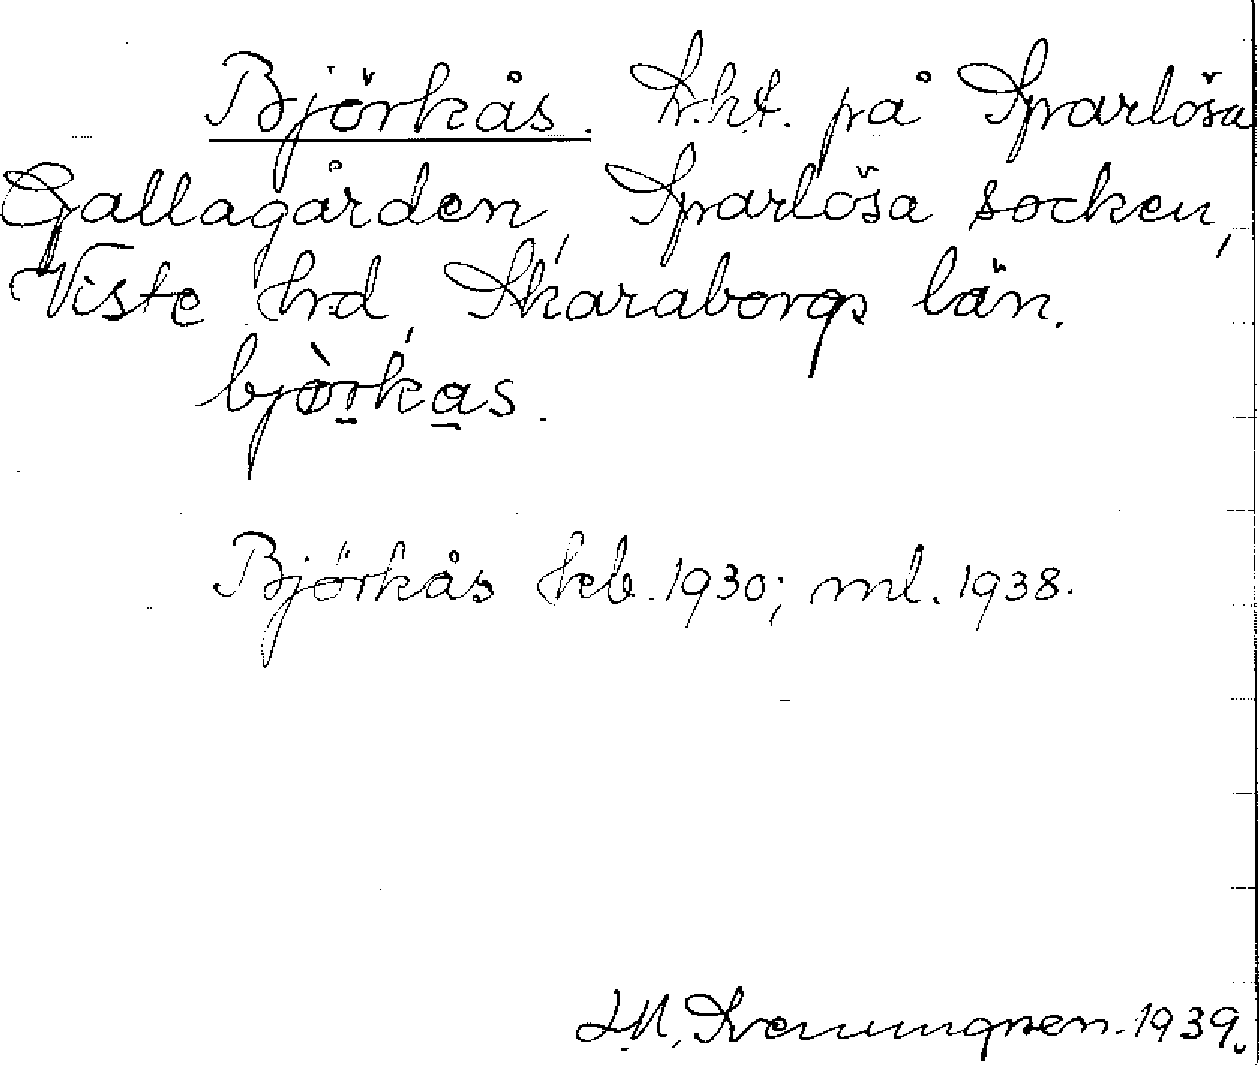 Björkås. Lht. på Sparlösa
Gallagården, Sparlösa socken,
Viste hrd, Skaraborgs län.
bjòrkas.
Björkås hcb. 1930; ml. 1938.
1939.